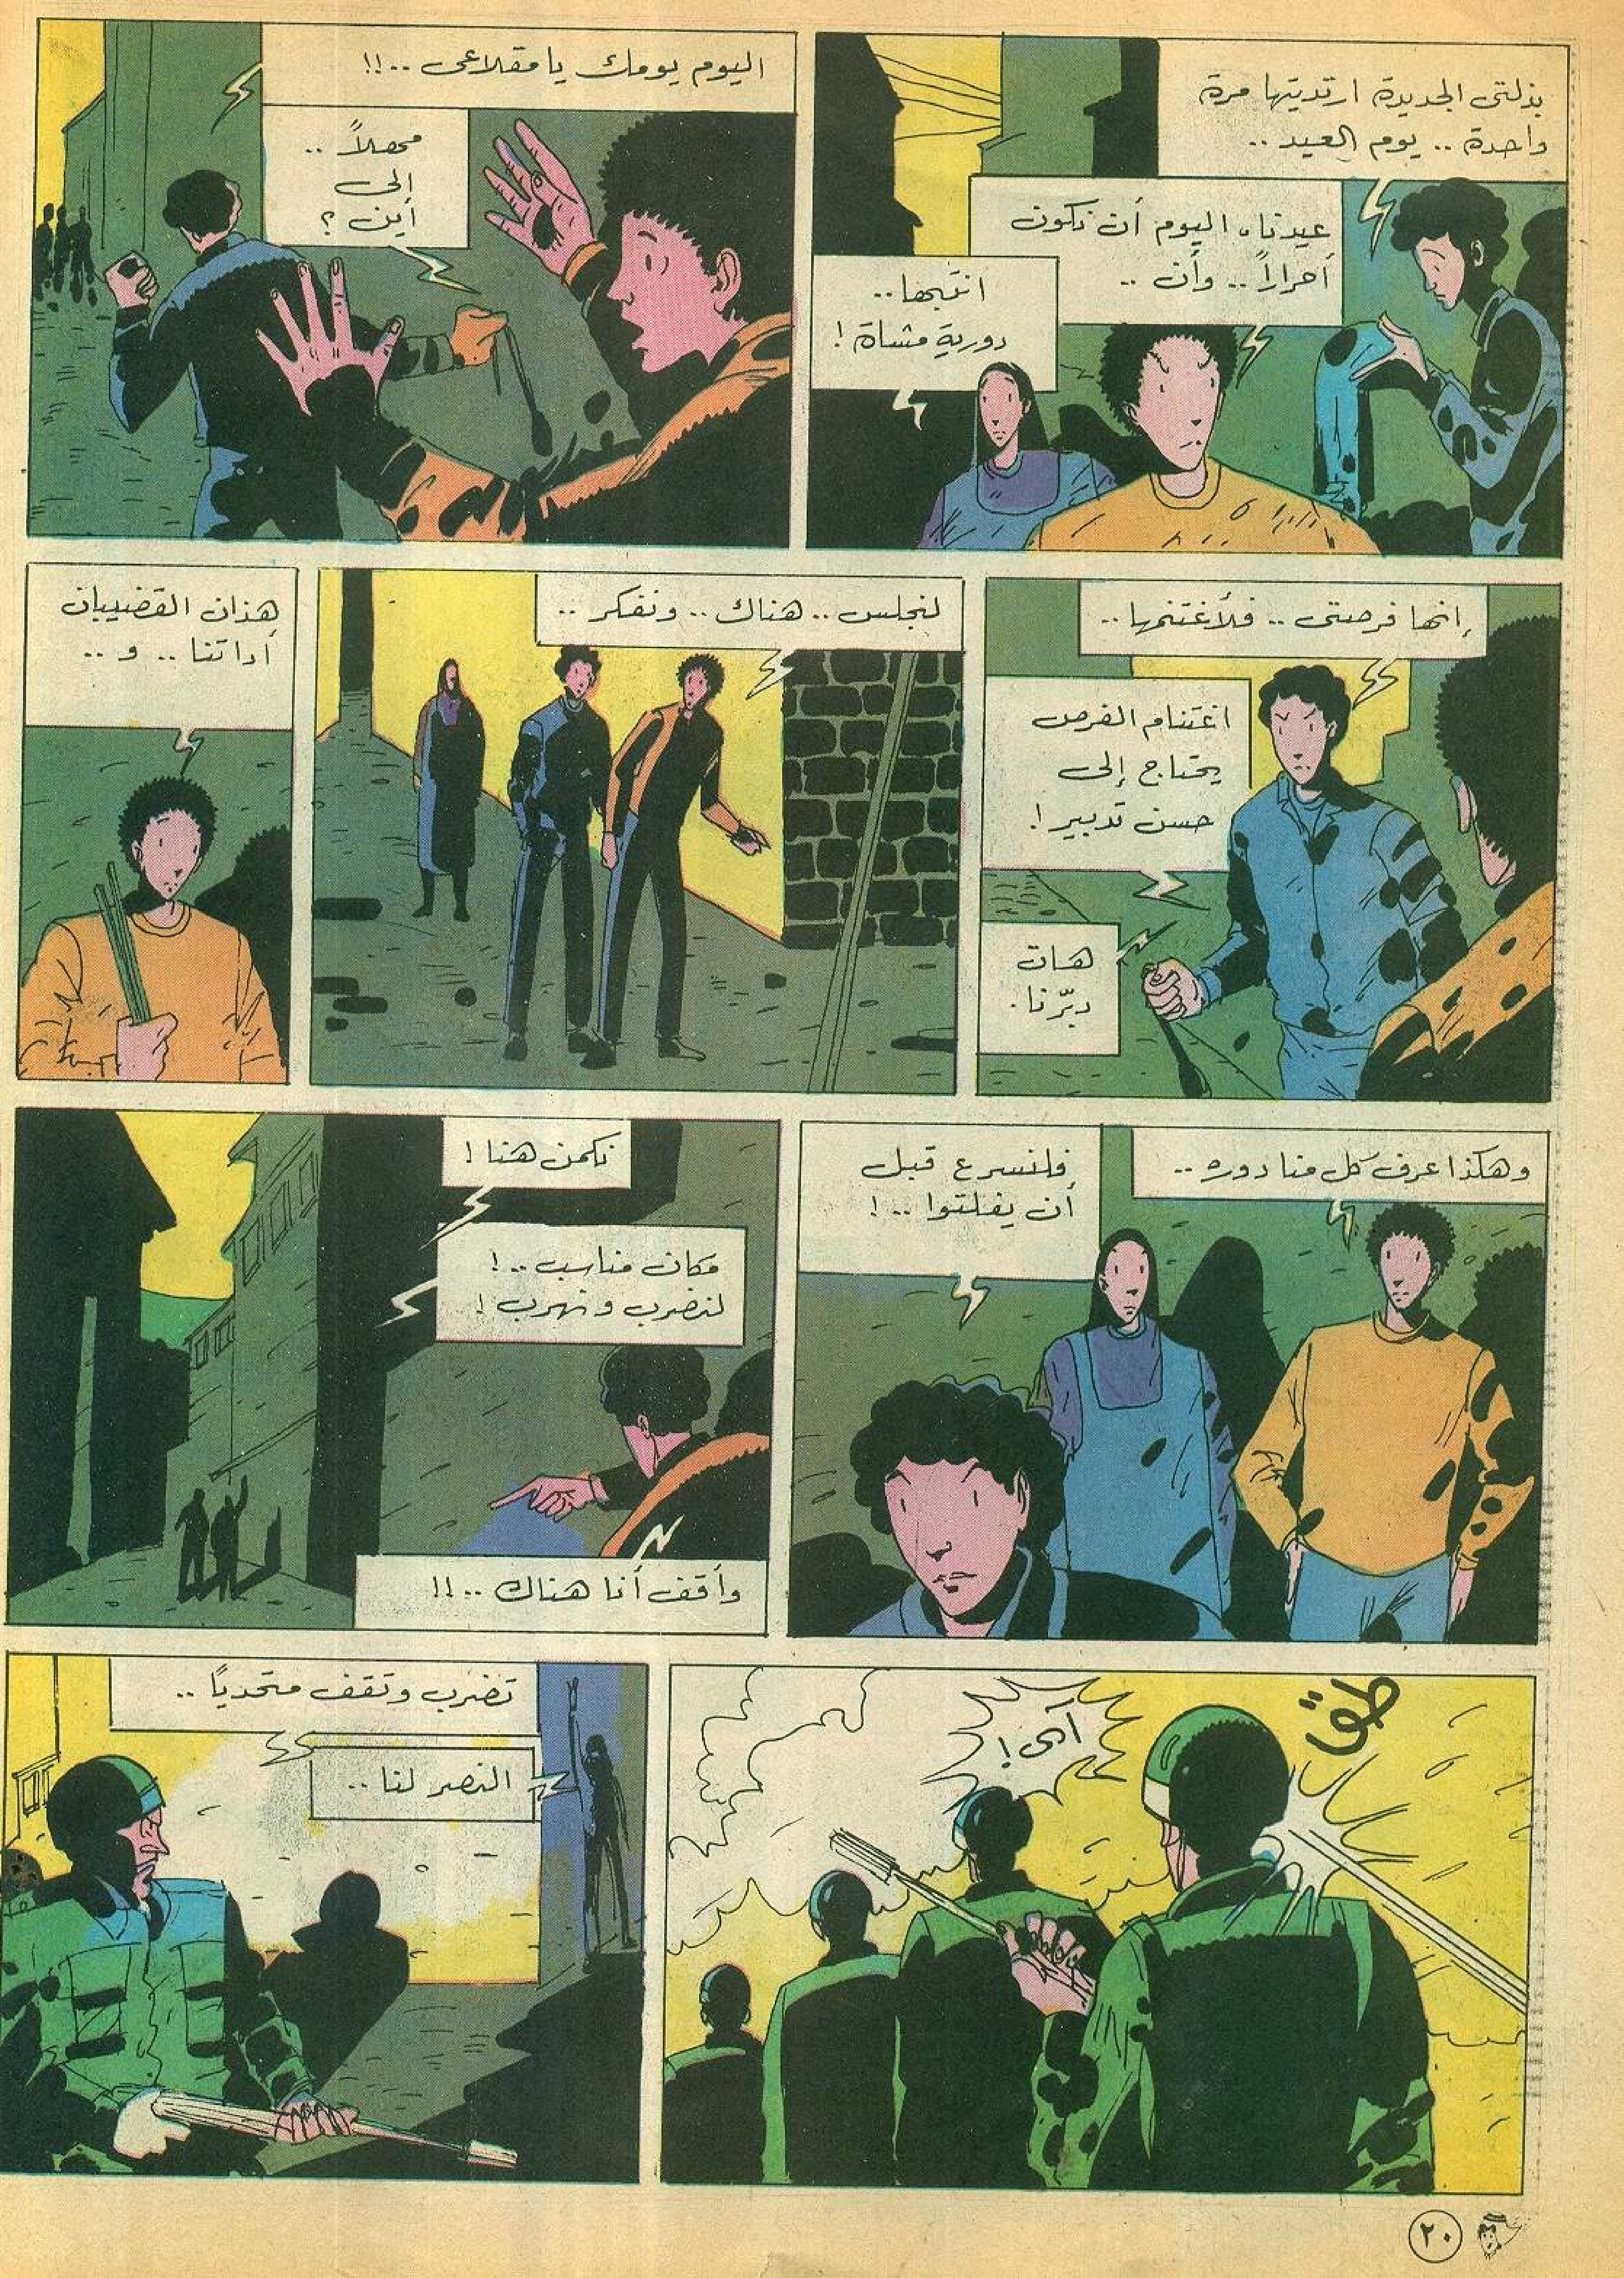 بذلتى الجديدة ارتديتها مرة
واحدة .. يوم العيد ..
عيدنا، اليوم أن نكون
أحراراً .. وأن ..
انتبها ..
دورية مشاة !
اليوم يومك يا مقلاعى .. !!
مهلاً ..
إلى
أين ؟
إنها فرصتى .. فلأغتنمها ..
اغتنام الفرص
يحتاج إلى
حسن تدبير !
هات
دبّرنا .
لنجلس .. هناك .. ونفكر ..
هذان القضيبان
أداتنا .. و ..
وهكذا عرف كل منا دوره ..
فلنسرع قبل
أن يفلتوا .. !
نكمن هنا !
مكان مناسب .. !
لنضرب ونهرب !
وأقف أنا هناك .. !!
طق
آى !
تضرب وتقف متحدياً ..
النصر لنا ..
٢٠